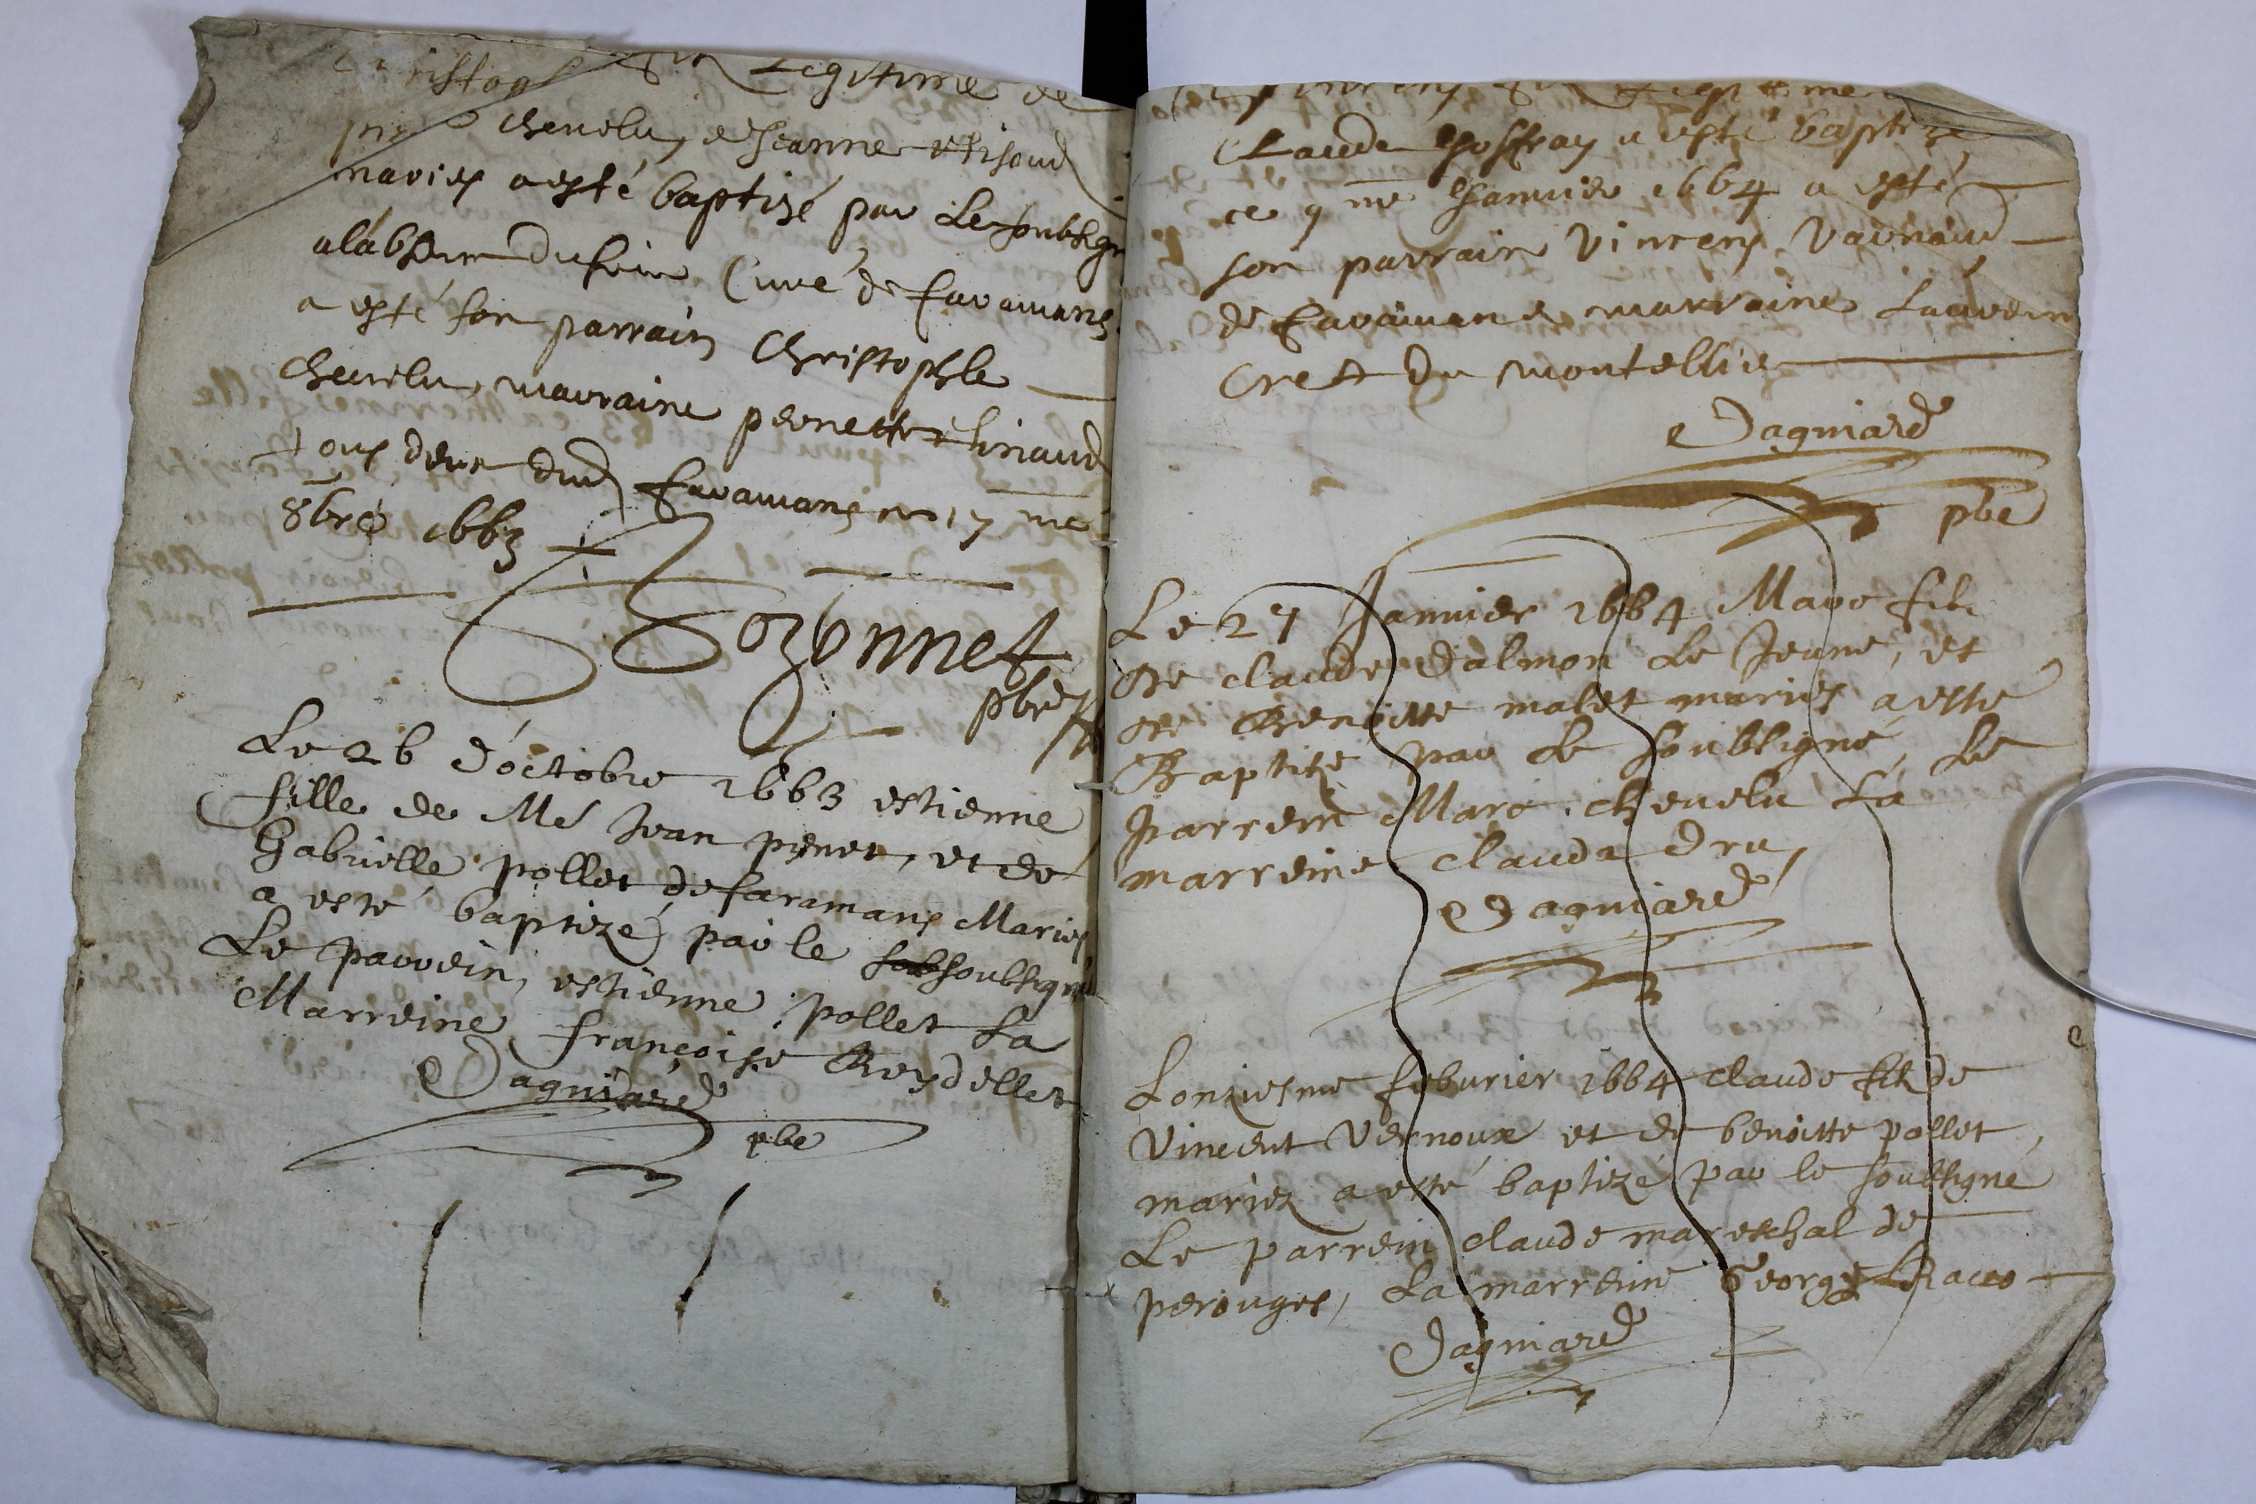 Christoph fils Legitime de
chevelu, & Jeanne
maries a esté baptizé par Le soubsigné
a labsence du sieur Curé de faramans
a esté son parrain Christophle
chevelu, marraine pernette
tous deux dud faramans ce 17 me
8bre 1663
Bozonnet
pbre
Le 26 d'octobre 1663 estienne
fille de Me Jean penet, et de
Gabrielle pollet de faramans Maries
a esté baptizé par le soubsigné
Le parrein, estienne pollet La
Marreine françoise Reydellet
Dagniard
pbe
Claude a esté baptizé
ce 9 me Janvier 1664 a esté
son parrain Vincent
de faramans marraine
Cret du montellier
Dagniard
pbe
Le 27 Janvier 1664 Marc fils
de claude dalmon Le Jeune, et
de Benoitte malet maries a esté
Baptizé par Le soubsigné, Le
parrein Marc chevelu La
marreine clauda dru,
Dagniard
Lonziesme feburier 1664 claude fils de
Vincent Vernoux et de benoitte pollet,
mariez a esté baptizé par le soubsigné
Le parrein claude mareschal de
perouges, La marreine George
Dagniard